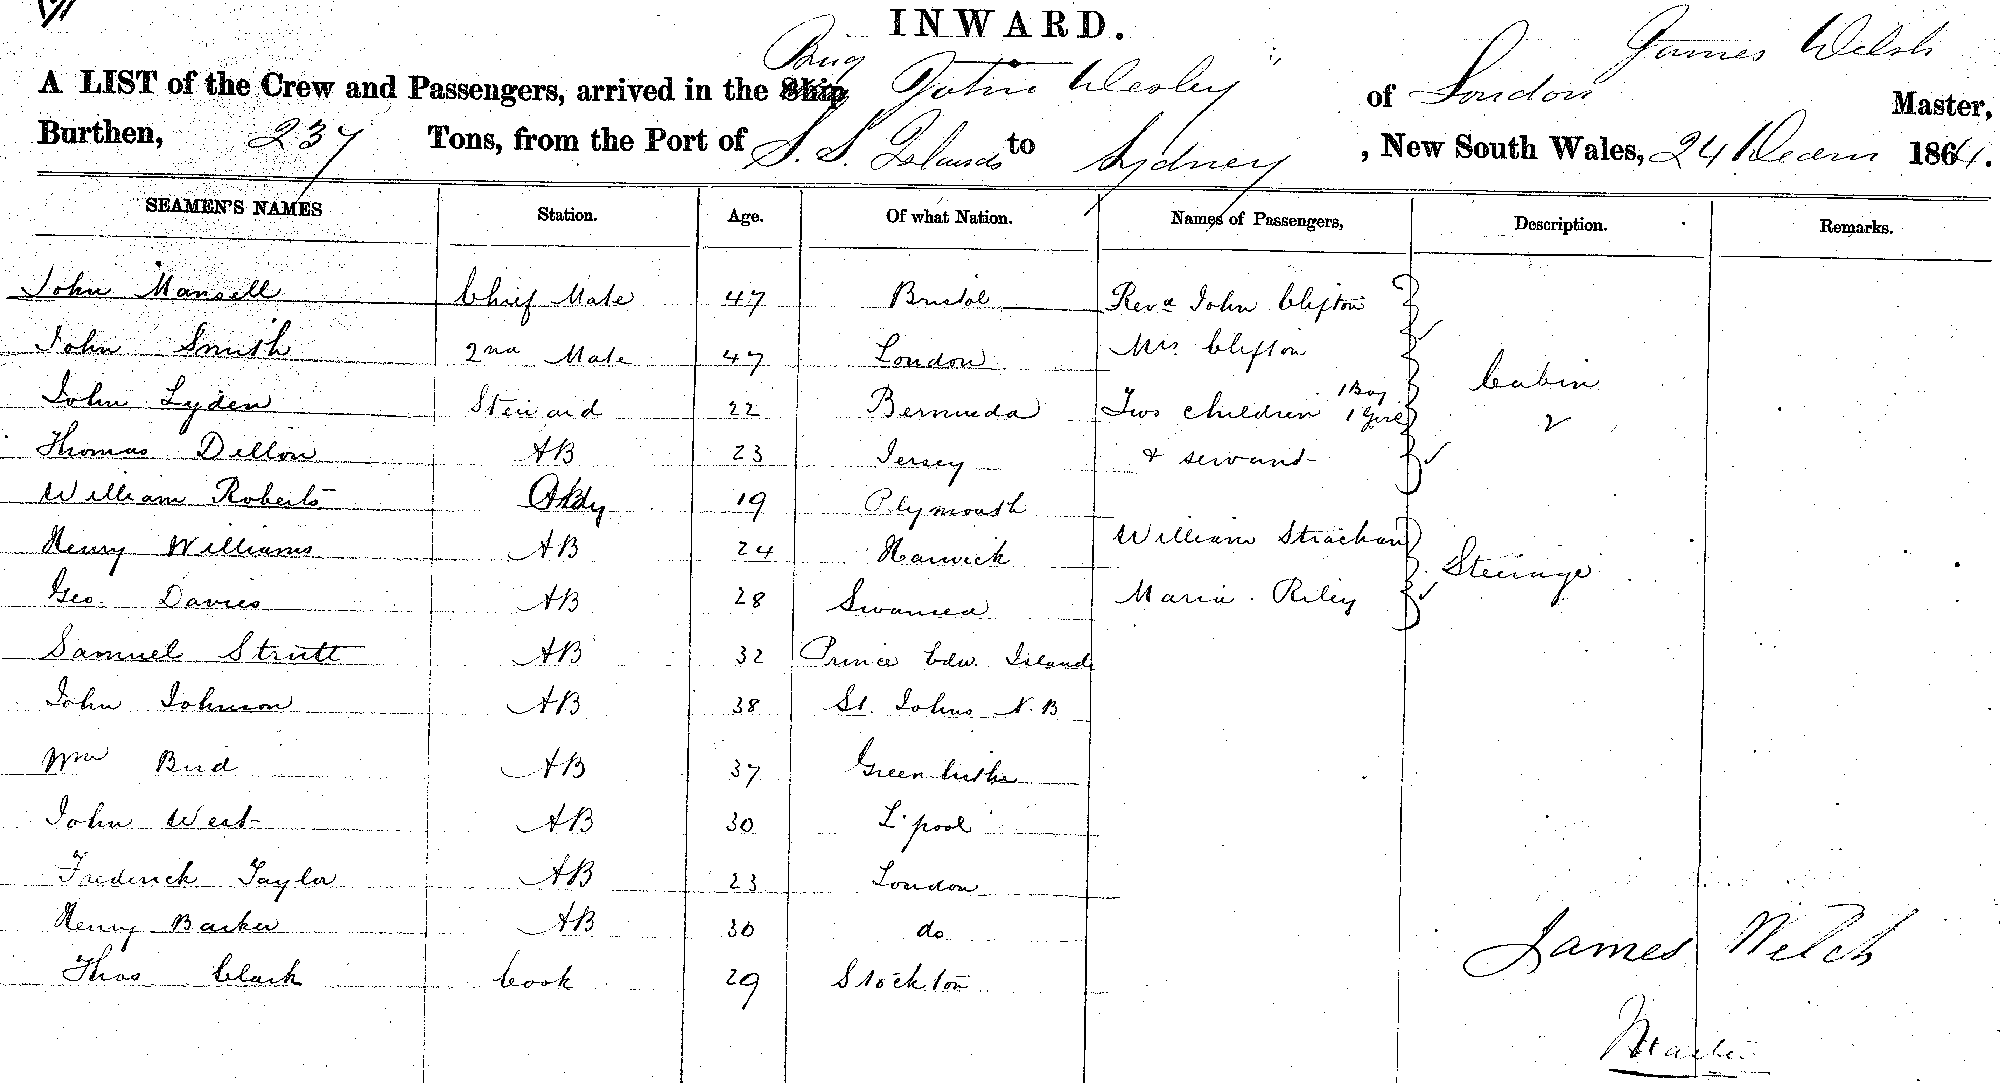 INWARD.
Brig James Welsh
A LIST of the Crew and Passengers, arrived in the Ship "John Wesley" of London Master,
Burthen, 237 Tons, from the Port of S. S. Islands to Sydney, New South Wales, 24 Decem 1864.
SEAMEN'S NAMES Station. Age. Of what Nation. Names of Passengers, Description. Remarks.
John Mansell Chief Mate 47 Bristol Revd John Clifton
John Smith 2nd Mate 47 London Mrs. Clifton
Cabin
1 Boy
John Lyden Steward 22 Bermuda Two children 1 Girl 2
Thomas Dillon AB 23 Jersey & servant
William Roberts Ordy 19 Plymouth
William Strachan
Henry Williams AB 24 Harwich Steerage
Geo. Davies AB 28 Swansea Maria Riley
Samuel Strutt AB 32 Prince Edw. Island
John Johnson AB 38 St. Johns N.B
Wm Bird AB 37 Greenhithe
John West AB 30 L'pool
Frederick Taylor AB 23 London
Henry Barker AB 30 do
James Welch
Thos Clark Cook 29 Stockton
Master